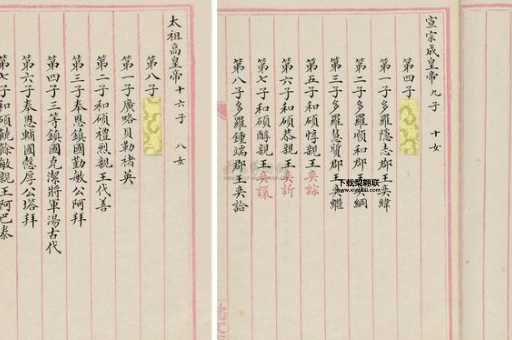 宣宗成皇帝 九子 十女
第四子
第一子多羅隱志郡王奕緯
第二子多羅順和郡王奕綱
第三子多羅慧質郡王奕繼
第五子和碩惇親王奕誴
第六子和碩恭親王奕訢
第七子和碩醇親王奕譞
第八子多羅鍾端郡王奕詥
太祖高皇帝 十六子 八女
第八子
第一子廣略貝勒褚英
第二子和碩禮烈親王代善
第三子奉恩鎮國勤敏公阿拜
第四子三等鎮國克潔將軍湯古代
第六子奉恩輔國愨厚公塔拜
第七子和碩饒餘敏親王阿巴泰
下载梁翻联